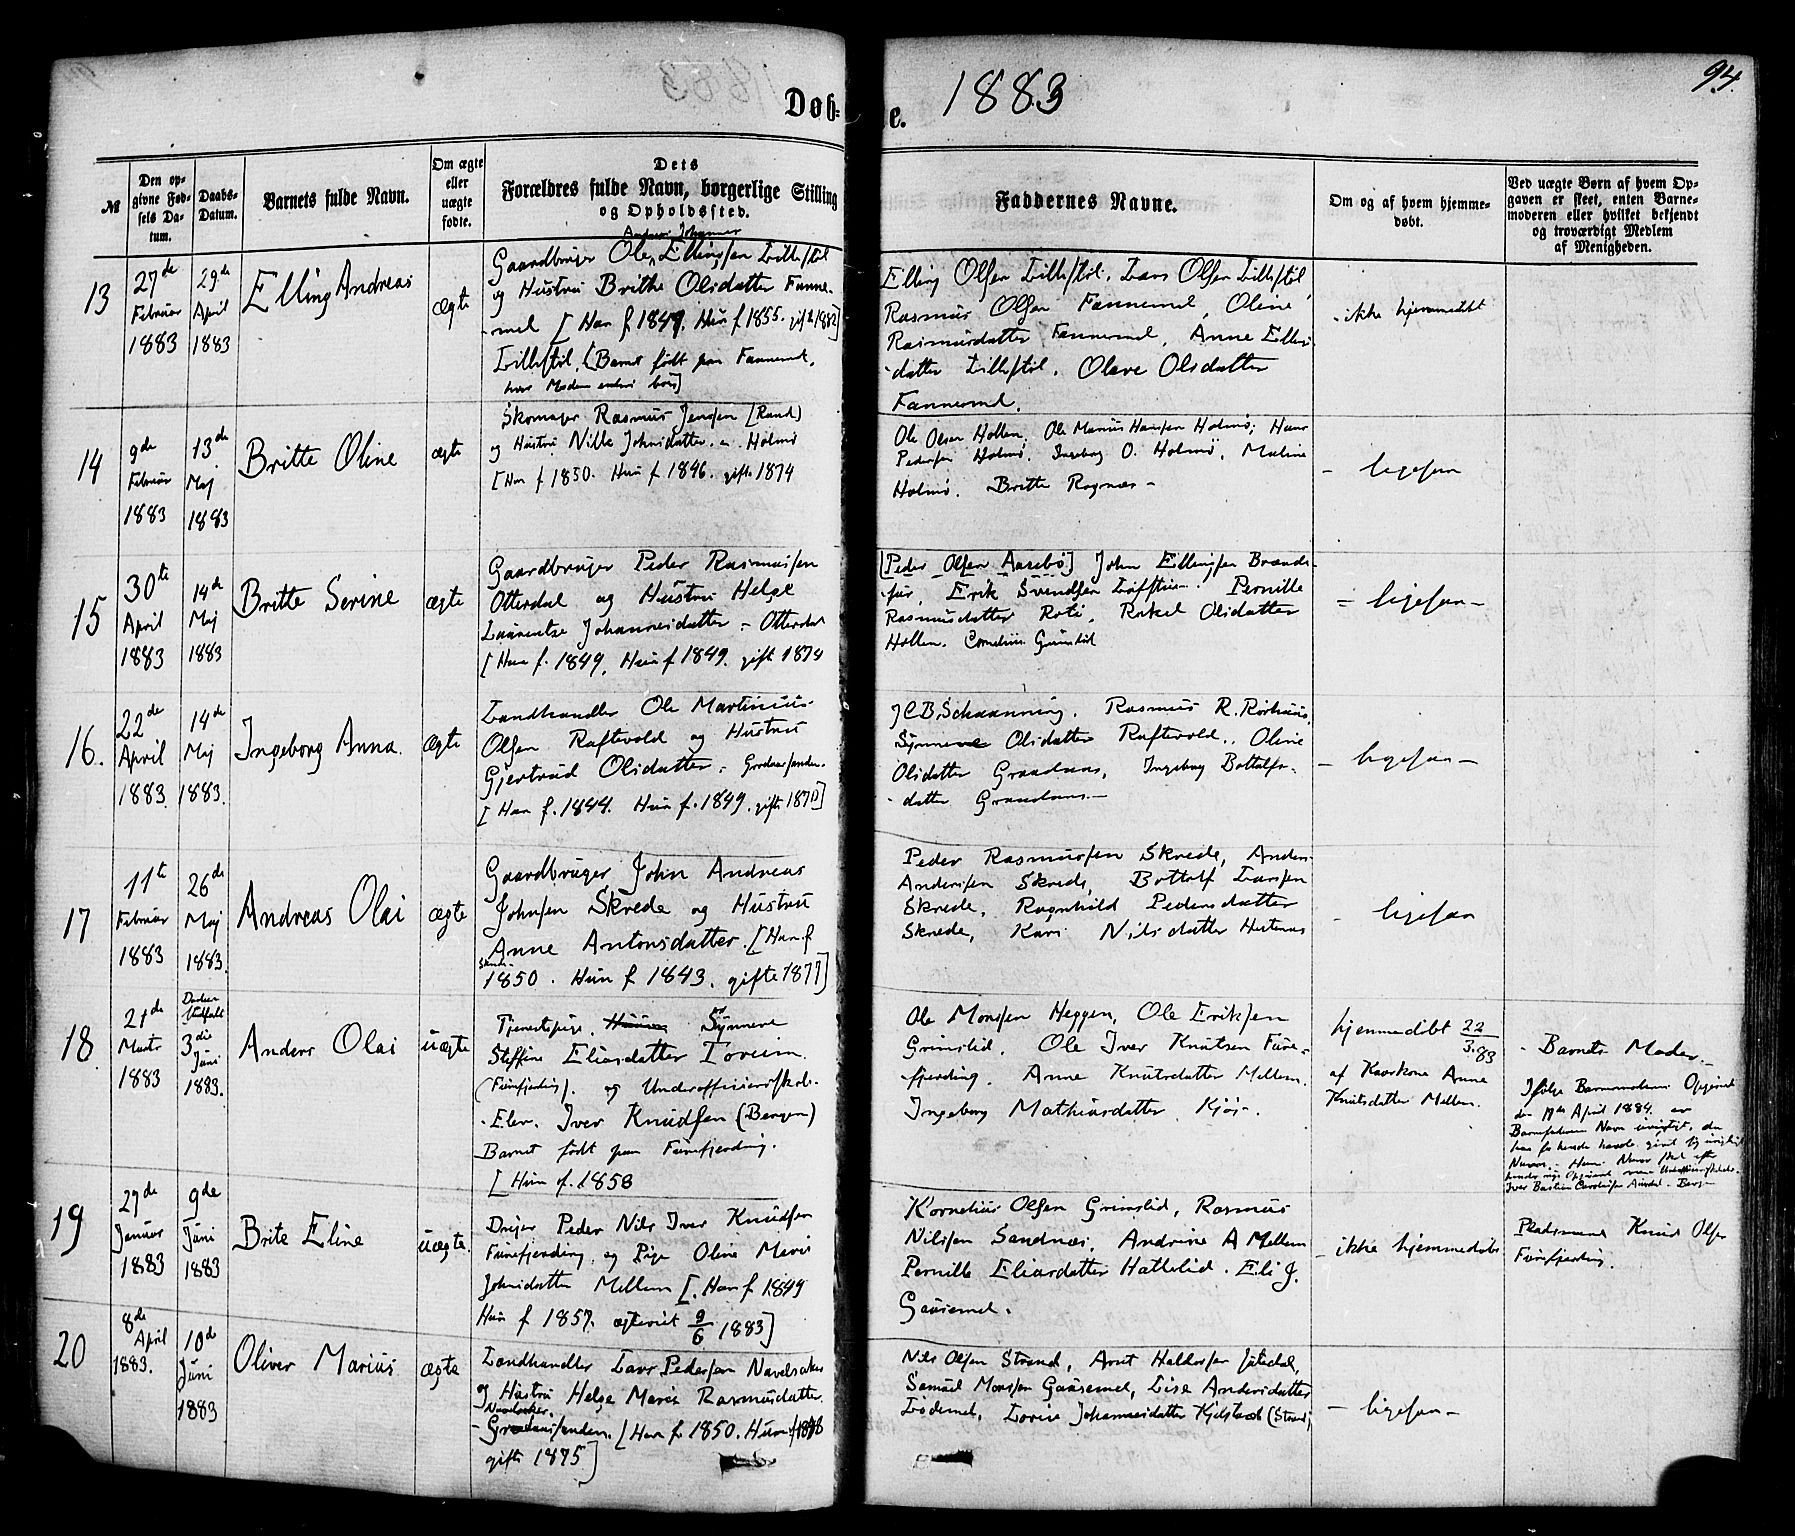 1883
94.
Døb-
e.
№
Den op-
givne Fød-
sels Da-
tum.
Daabs-
Datum.
Barnets fulde Navn.
Om ægte
eller
uægte
fødte.
Dets
Forældres fulde Navn, borgerlige Stilling
og Opholdssted.
Faddernes Navne.
Om og af hvem hjemme-
døbt.
Ved uægte Børn af hvem Op-
gaven er skeet, enten Barne-
moderen eller hvilket bekjendt
og troværdigt Medlem
af Menigheden.
13
27de
Februar
1883
29de
April
1883
Elling Andreas
ægte
Gaardbruger Ole Ellingsen Lillestøl
og Hustru Brithe Olsdatter Fanne-
mel [Han f 1849. Hun f 1855. gift 1882]
Lillestøl. [Barnet født paa Fannemel,
hvor Moderen endnu bor]
Elling Olsen Lillestøl. Lars Olsen Lillestøl,
Rasmus Olsen Fannemel, Oline
Rasmusdatter Fannemel, Anne Ellings-
datter Lillestøl. Olave Olsdatter
Fannemel.
- ikke hjemmedøbt
14
9de
Februar
1883
13de
Maj
1883
Britte Oline
ægte
Skomager Rasmus Jensen [Rand)
og Hustru Nille Johnsdatter. Holmø
[Han f 1830. Hun f 1846. gift 1874
Ole Olsen Hollen, Ole Marius Hansen Holmø, Hans
Pedersen Holmø, Ingeborg O. Holmø, Maline
Holmø. Britte Ragnæs -
- ligesaa
15
30te
April
1883
14de
Maj
1883
Britte Serine
ægte
Gaardbruger Peder Rasmussen
Otterdal og Hustru Helge
Laurentse Johannesdatter - Otterdal
[Han f. 1849, Hun f 1849. gift 1874
[Peder Olsen Aarebø] John Ellingsen
Erik Svendsen Pernille
Rasmusdatter Roti, Rakel Olsdatter
Hollen. Cornelius Grimstid
- ligesaa -
16.
22de
April
1883.
14de
Maj
1883.
Ingeborg Anna.
ægte
Landhandler Ole Martinius
Olsen Raftevold og Hustru
Gjertrud Olsdatter. Grodaassanden.
[Han f. 1844. Hun f. 1849. gift 1870]
J C B Schaanning. Rasmus R. Rørhuus,
Synneve Olsdatter Raftevold., Oline
Olsdatter Graadaas, Ingeborg Bottolfs-
datter Graadaas -
- ligesaa -
17
11te
Februar
1883
26de
Maj
1883.
Andreas Olai
ægte
Gaardbruger John Andreas
Johnsen Skrede og Hustru
Anne Antonsdatter. [Han f
1850. Hun f 1843. gifte 1877]
Peder Rasmussen Skrede, Anders
Andersen Skrede, Bottolf Larsen
Skrede, Ragnhild Pedersdatter
Skrede, Kari Nilsdatter Hestenes
- ligesaa
18
21de
Marts
1883
3die
Juni
1883.
Anders Olai
uægte
Tjenestpige, Synneve
Steffine Eliasdatter Lovium.
(Furefjerding). og Underofficiersskole-
Elev. Iver Knudsen (Bergen)
Barnet født paa Furefjerding.
[Hun f. 1858
Ole Monsen Heggen, Ole Eriksen
Grimstid. Ole Iver Knutsen Fure-
fjerding. Anne Knutsdatter Mellem.
Ingeborg Mathiasdatter Kjøs -.
hjemmedøbt 22/3.83
af Kaarkone Anne
Knutsdatter Mellem.
- Barnets Moder -
Ifølge Barnemoderens Opgivende
den 17de April 1884. er
Barnefaderens Navn urigtigt, da
19
27de
Januar
1883
9de
Juni
1883
Brite Eline
uægte.
Drejer Peder Nils Iver Knudsen
Furefjerding, og Pige Oline Marie
Johnsdatter Mellem [. Han f 1849
Hun f 1857. ægteviet 9/6 1883]
Kornelius Olsen Grimstid, Rasmus
Nilssen Sandnæs, Andrine A Mellem
Pernille Eliasdatter Hattelid. Eli J.
Gausemel.
- ikke hjemmedøbt
Pladsmand Knud Olsen
Furefjerding.
20
8de
April
1883.
10de
Juni
1883
Oliver Marius
ægte
Landhandler Lars Pedersen Navelsaker
og Hustru Helge Marie Rasmusdatter
Navelsaker.
- Grodaassanden. [Han f. 1850. Hun f 1848
gift 1875]
Nils Olsen Strand, Arnt Haldorsen
Samuel Monsen Gausemel, Lise Andersdatter
Lødemel, Lovise Johannesdatter Kjelstad (Strand)
- ligesaa -